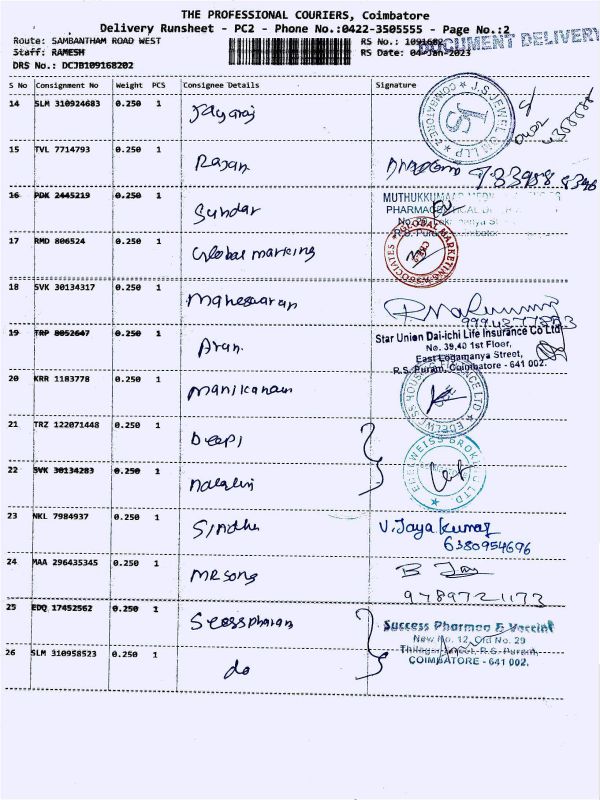 THE PROFESSIONAL COURIERS, Coimbatore
Delivery Runsheet - PC2 - Phone No.:0422-3505555 - Page No.:2
Route: SAMBANTHAM ROAD WEST RS No.: 1091682
Staff: RAMESH RS Date: 04-Jan-2023
DOCUMENT DELIVERY
DRS No.: DCJB109168202
S No Consignment No Weight PCS Consignee Details Signature
14 SLM 310924683 0.250 1 Jayaraj
J.S JEWEL COIMBATORE-2 JS
15 TVL 7714793 0.250 1 Rajan
16 PDK 2445219 0.250 1 Sundar
PHARMAC
17 RMD 806524 0.250 1 Global marking
GLOBAL MARKETING ASSOCIATES
18 SVK 30134317 0.250 1 Maheswaran
19 TRP 8052647 0.250 1 Aran
Star Union Dai-ichi Life Insurance Co Ltd
No. 39,40 1st Floor,
East Logamanya Street,
R.S. Puram, Coimbatore - 641 002.
20 KRR 1183778 0.250 1
EDELWEISS HOUSING FINANCE LTD
21 TRZ 122071448 0.250 1
22 SVK 30134283 0.250 1
EDELWEISS BROKING LTD
23 NKL 7984937 0.250 1 Sindhu V. Jaya Kumar
6380954696
24 MAA 296435345 0.250 1 MR Song
9789721173
25 EDQ 17452562 0.250 1
Success Pharma & Vaccine
New No. 12, Old No. 29
R.S. Puram,
COIMBATORE - 641 002.
26 SLM 310958523 0.250 1 do